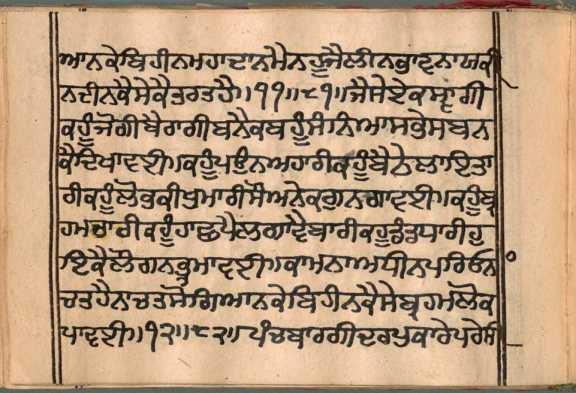 ਆਨਕੇਬਿਹੀਨਮਹਾਦਾਨਮੈਨਹੂਜੈਲੀਨਭਾਵਨਾਯਕੀ
ਨਦੀਨਕੈਸੇਕੈਤਰਤਹੈ॥੧੧॥੮੧॥ਜੈਸੇਏਕਸ੍ਵਾਗੀ
ਕਹੂੰਜੋਗੀਬੈਰਾਗੀਬਨੈਕਬਹੂੰਸੰਨਿਆਸਭੇਸਬਨ
ਕੈਦਿਖਾਵਈ॥ਕਹੂੰਪਉਨਅਹਾਰੀਕਹੂੰਬੈਠੇਲਾਇਤਾ
ਰੀਕਹੂੰਲੋਭਕੀਖੁਮਾਰੀਸੌਅਨੇਕਗੁਨਗਾਵਈ॥ਕਹੂੰਬ੍ਰ
ਹਮਚਾਰੀਕਹੂੰਹਾਥਪੈਲਗਾਵੈਬਾਰੀਕਹੂੰਡੰਡਧਾਰੀਹੁ
ਇਕੈਲੋਗਨਭ੍ਰਮਾਵਈ॥ਕਾਮਨਾਅਧੀਨਪਰਿਓਨ
ਚਤਹੈਨਚਤਸੋਗਿਆਨਕੇਬਿਹੀਨਕੈਸੇਬ੍ਰਹਮਲੋਕ
ਪਾਵਈ॥੧੨॥੮੨॥ਪੰਚਬਾਰਗੀਦਰਪੁਕਾਰੇਪਰੇਸੀ